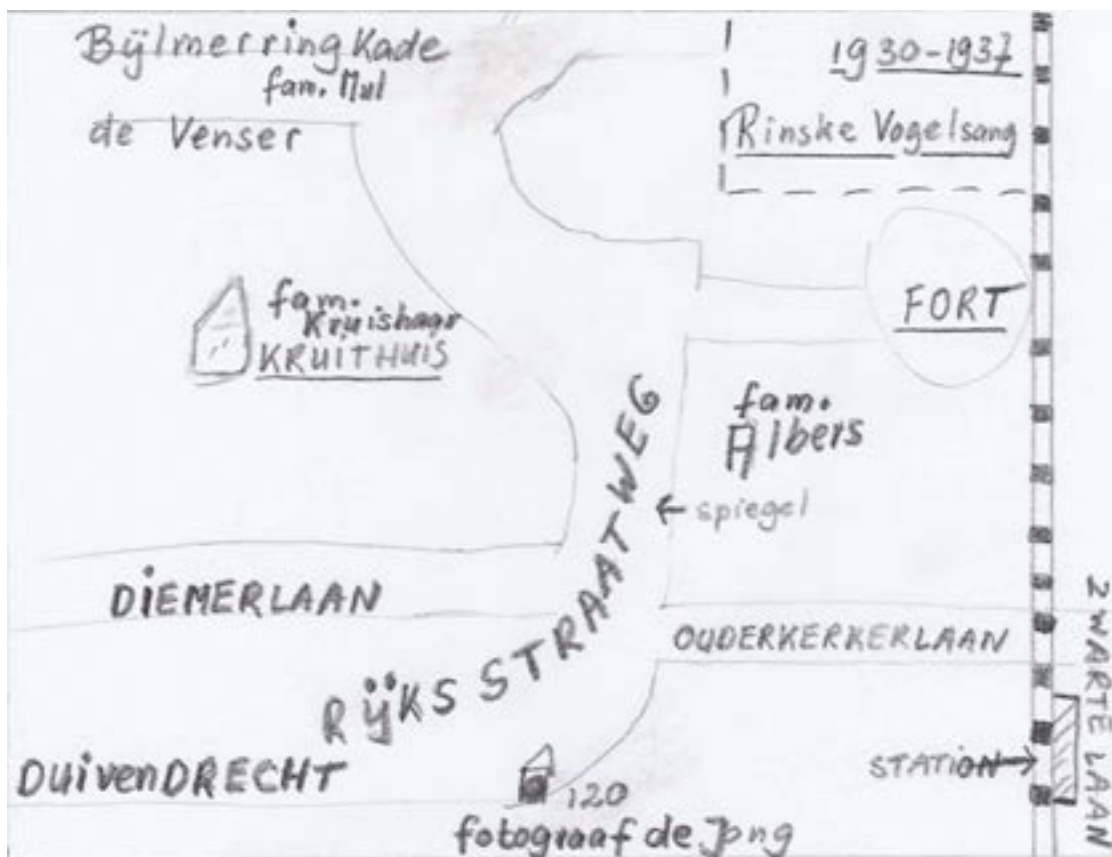 Bijlmerringkade
fam. Mul
de Venser
1930-1937
Rinske Vogelsang
fam.
Kruishaar
KRUITHUIS
FORT
fam.
Albers
← spiegel
DiEMERLAAN
RIJKSSTRAATWEG
OUDERKERKERLAAN
ZWARTE LAAN
DuivenDRECHT
STATION →
120
fotograaf de Jong